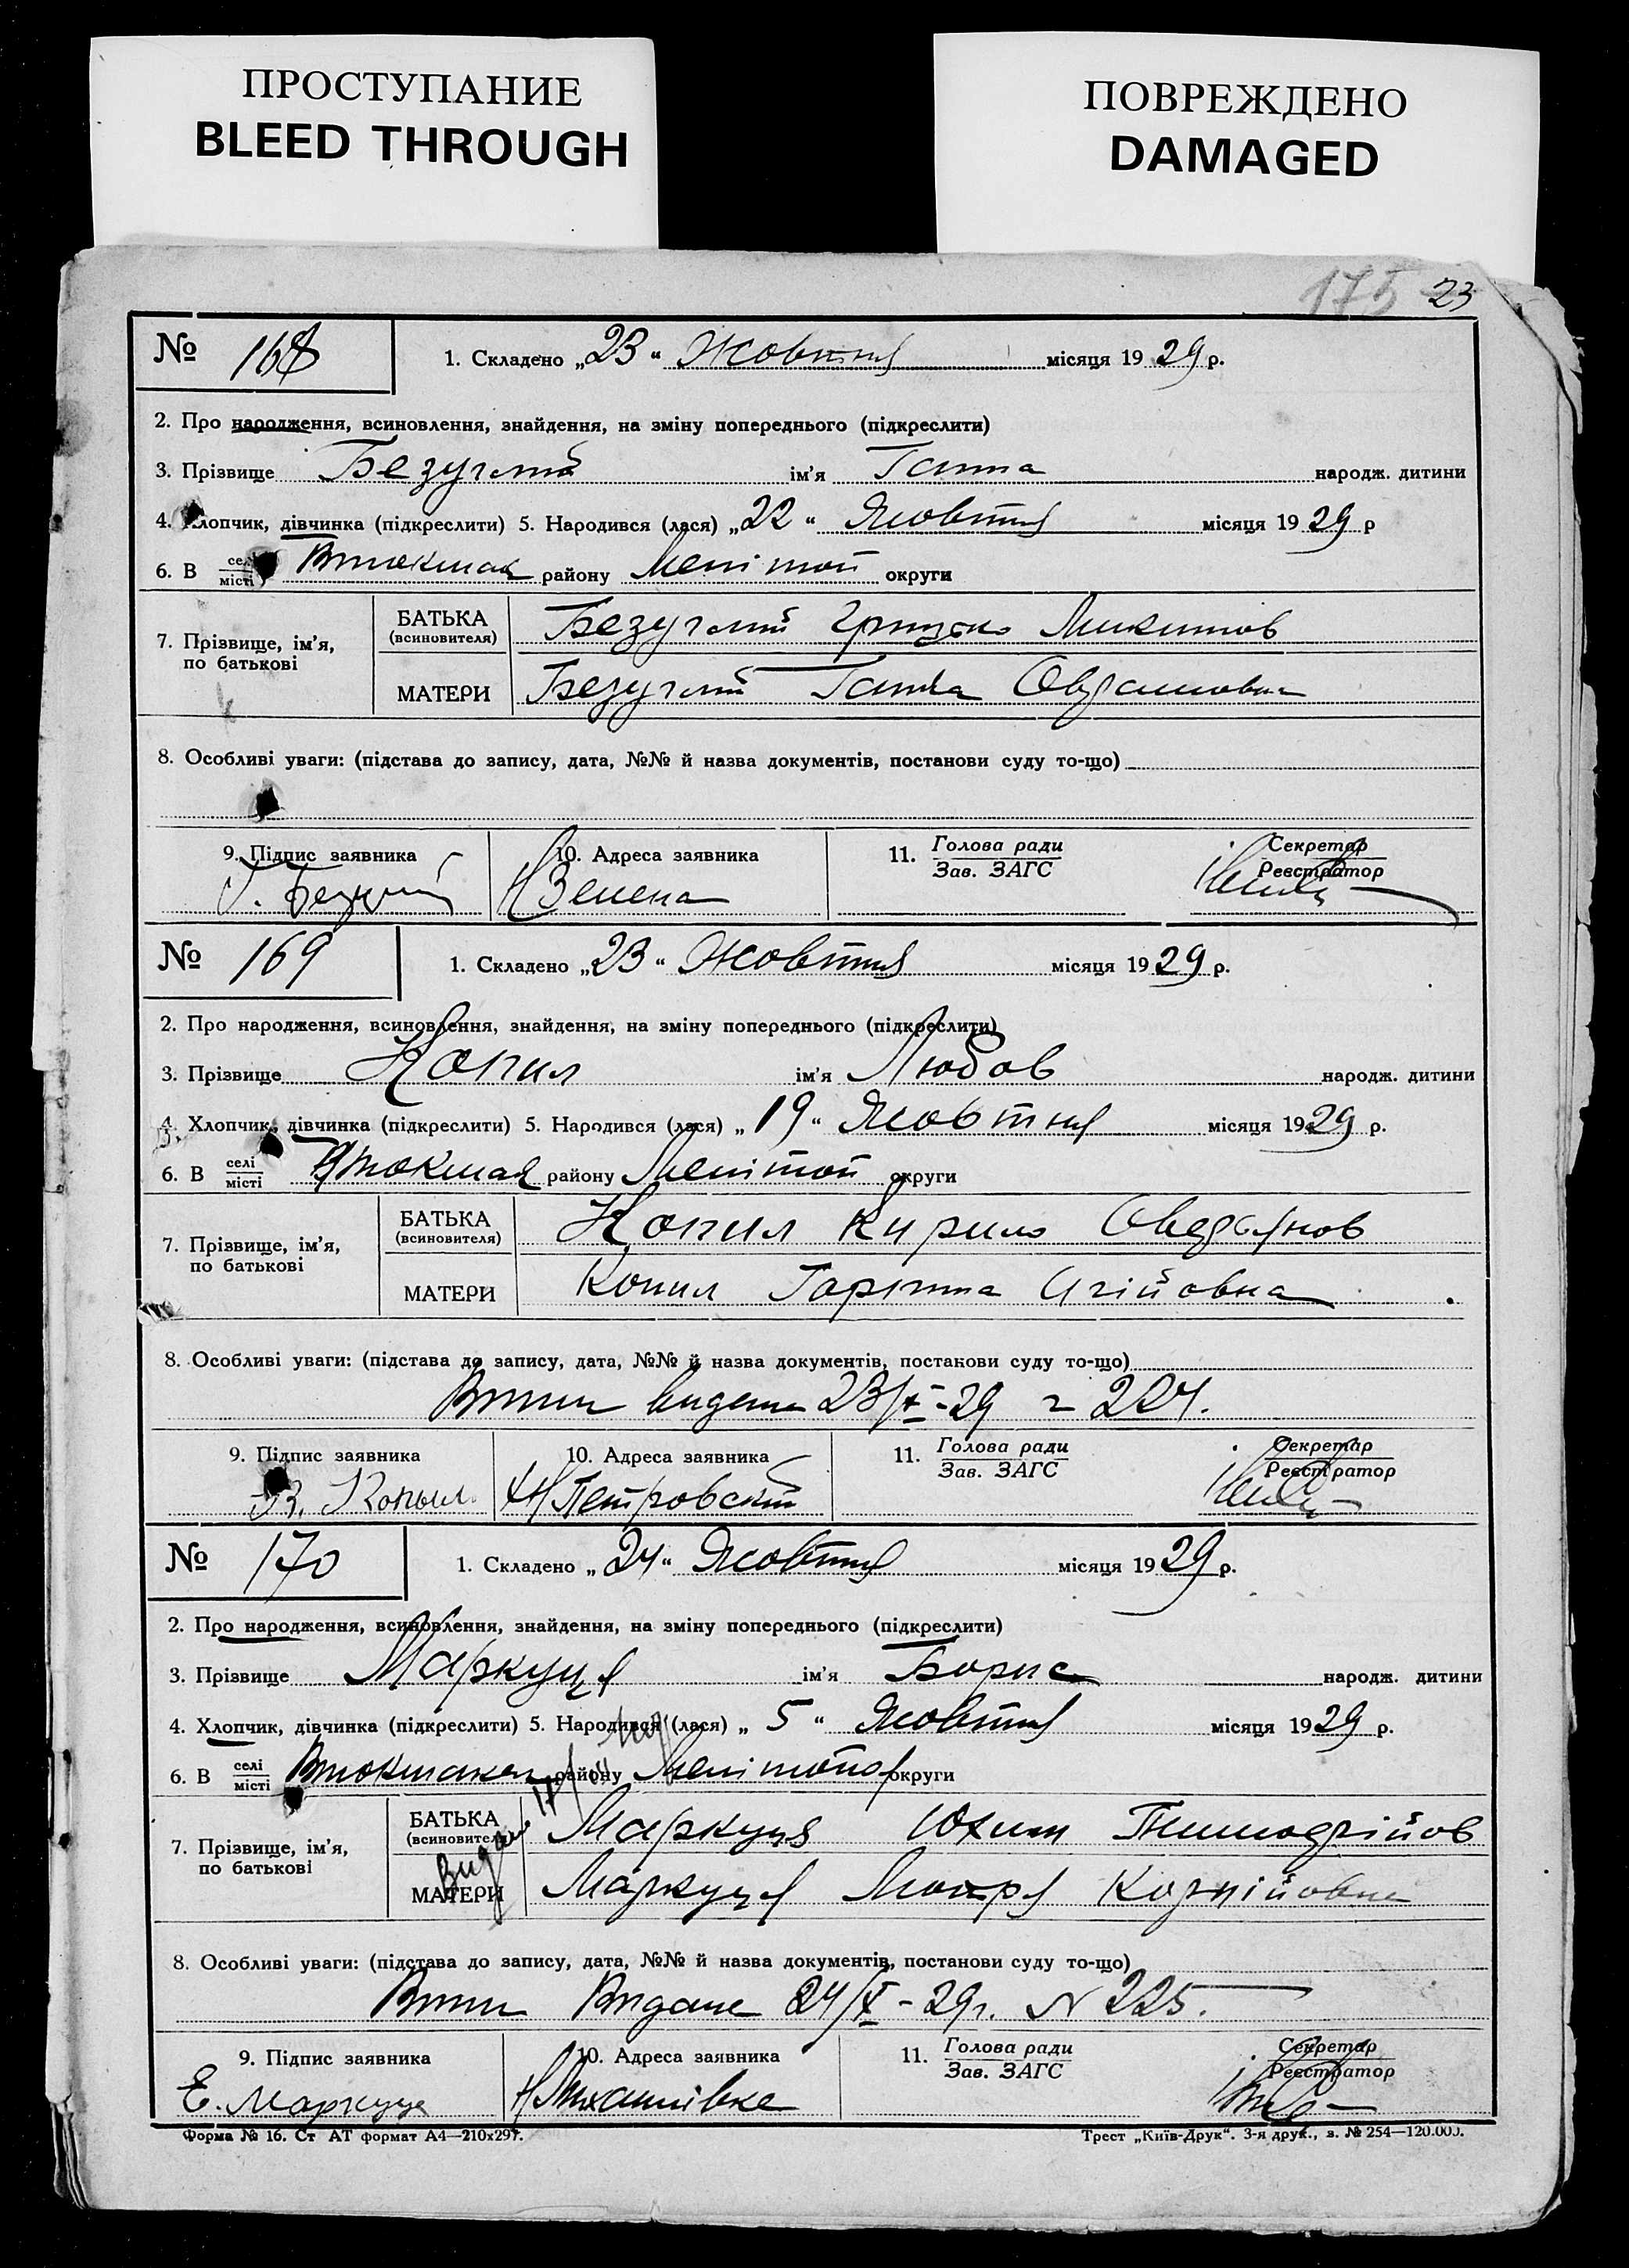 ПРОСТУПАНИЕ
BLEED THROUGH
ПОВРЕЖДЕНО
DAMAGED
175 23
№ 168 1. Складено „23“ Жовтня місяця 1929 р.
2. Про народження, всиновлення, знайдення, на зміну попереднього (підкреслити)
3. Прізвище Безуглий ім'я Ганна народж. дитини
4. Хлопчик, дівчинка (підкреслити) 5. Народився (лася) „22“ Жовтня місяця 1929 р
6. В селі місті Втокмак району Мелітоп округи
7. Прізвище, ім'я, по батькові
БАТЬКА (всиновителя) Безуглий Грицько Микитов
МАТЕРИ Безуглий Ганна
8. Особливі уваги: (підстава до запису, дата, №№ й назва документів, постанови суду то-що)
9. Підпис заявника 10. Адреса заявника 11. Голова ради Зав. ЗАГС Секретар Реєстратор
№ 169 1. Складено „23“ Жовтня місяця 1929 р.
2. Про народження, всиновлення, знайдення, на зміну попереднього (підкреслити)
3. Прізвище Копил ім'я Любов народж. дитини
4. Хлопчик, дівчинка (підкреслити) 5. Народився (лася) „19“ Жовтня місяця 1929 р.
6. В селі місті Втокмак району Мелітоп округи
7. Прізвище, ім'я, по батькові
БАТЬКА (всиновителя) Копил Кирило Оведянов
МАТЕРИ Копил Горпина
8. Особливі уваги: (підстава до запису, дата, №№ й назва документів, постанови суду то-що)
Витяг видано 23/X-29 224.
9. Підпис заявника 10. Адреса заявника 11. Голова ради Зав. ЗАГС Секретар Реєстратор
К. Копыл Н Петровский
№ 170 1. Складено „24“ Жовтня місяця 1929 р.
2. Про народження, всиновлення, знайдення, на зміну попереднього (підкреслити)
3. Прізвище Маркуця ім'я Борис народж. дитини
4. Хлопчик, дівчинка (підкреслити) 5. Народився (лася) „5“ Жовтня місяця 1929 р.
6. В селі місті району округи
7. Прізвище, ім'я, по батькові
БАТЬКА (всиновителя) Маркуця Юхим
МАТЕРИ Маркуця Мотря Корнійовна
8. Особливі уваги: (підстава до запису, дата, №№ й назва документів, постанови суду то-що)
Витяг Видане 24/X-29г. N 225.
9. Підпис заявника 10. Адреса заявника 11. Голова ради Зав. ЗАГС Секретар Реєстратор
Е. Маркуца Н Михайлівка
Форма № 16. Ст АТ формат А4—210х297. Трест „Київ-Друк“. 3-я друк., з. № 254—120.000.